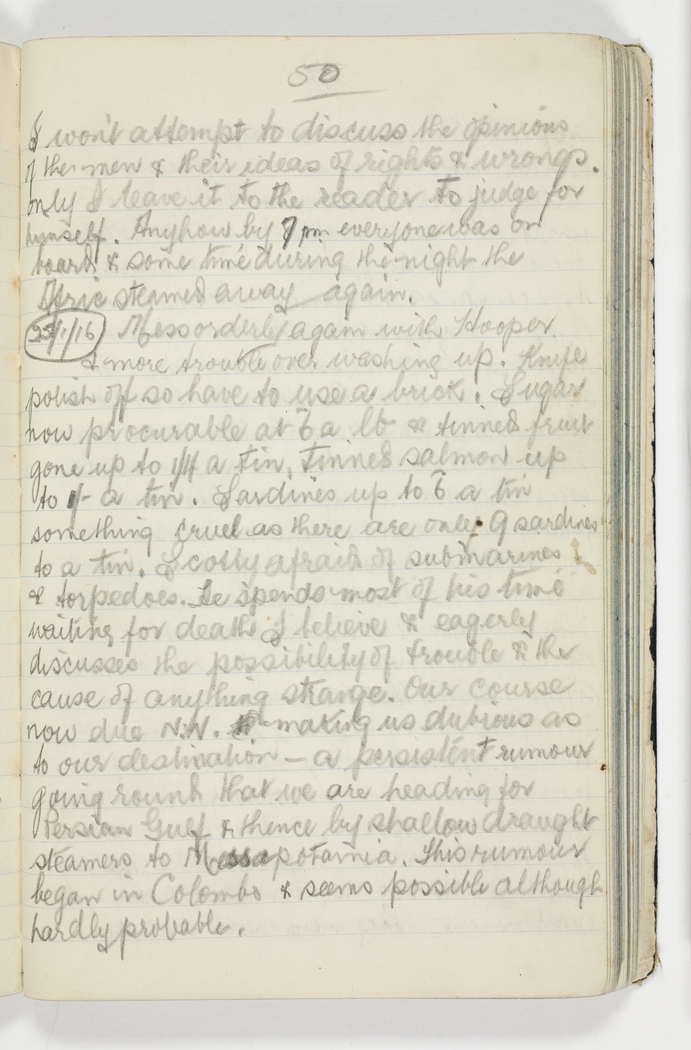 50
I won't attempt to discuss the opinions
of the men & their ideas of rights & wrongs.
only I leave it to the reader to judge for
himself. Anyhow by 7 pm everyone was on
board & some time during the night the
Afric steamed away again.
25/1/16 Mess orderly again with Hooper.
& more trouble over washing up. Knife
polish off so have to use a brick. Sugar
now procurable at 6 a lb & tinned fruit
gone up to 1/4 a tin, tinned salmon up
to 1/- a tin. Sardines up to 6 a tin
something cruel as there are only 9 sardines
to a tin. Scotty afraid of submarines
& torpedoes. He spends most of his time
waiting for death I believe & eagerly
discusses the possibility of trouble & the
cause of anything strange. Our course
now due N.W. making us dubious as
to our destination – a persistent rumour
going round that we are heading for
Persian Gulf & thence by shallow draught
steamers to Messapotamia. This rumour
began in Colombo & seems possible although
hardly probable.